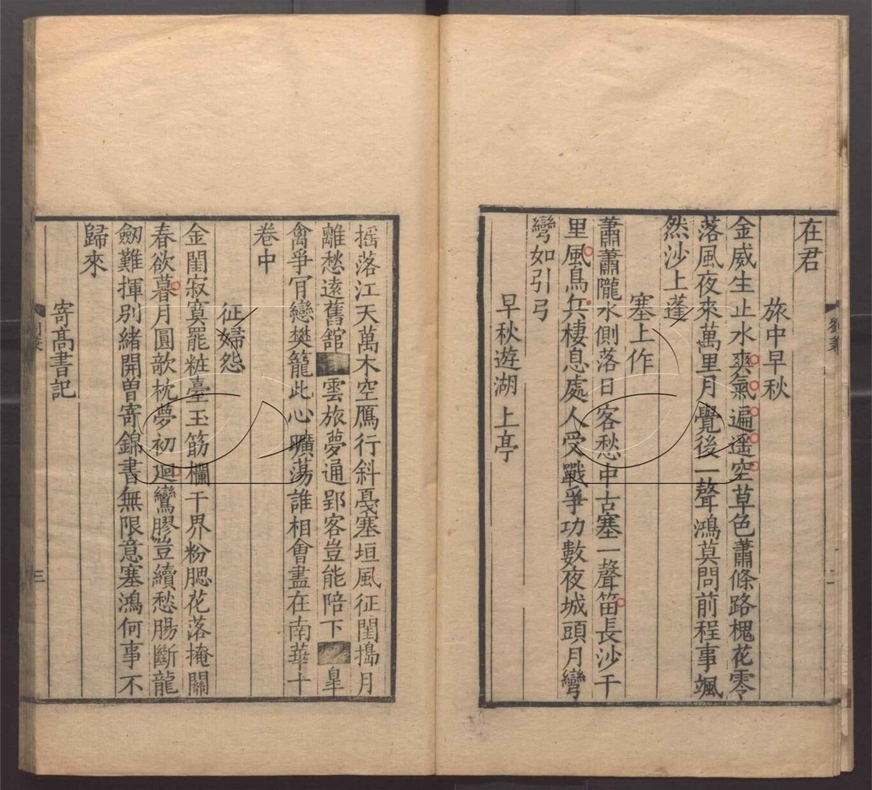 在君
旅中早秋
金威生止水爽氣遍遥空草色蕭條路槐花零
落風夜來萬里月覺後一聲鴻莫問前程事颯
然沙上蓬
塞上作
蕭蕭隴水側落日客愁中古塞一聲笛長沙千
里風鳥兵棲息處人受戰爭功數夜城頭月彎
彎如引弓
早秋遊湖上亭
揺落江天萬木空鴈行斜戞塞垣風征閨搗月
離愁遠舊館雲旅夢通郢客豈能陪下皐
禽爭肎戀樊籠此心曠蕩誰相會盡在南華十
卷中
征婦怨
金閨寂寞罷粧臺玉筋欄干界粉腮花落掩關
春欲暮月圓欹枕夢初廻鸞膠豈續愁腸斷龍
劒難揮别緒開曽寄錦書無限意塞鴻何事不
歸來
寄髙書記
三